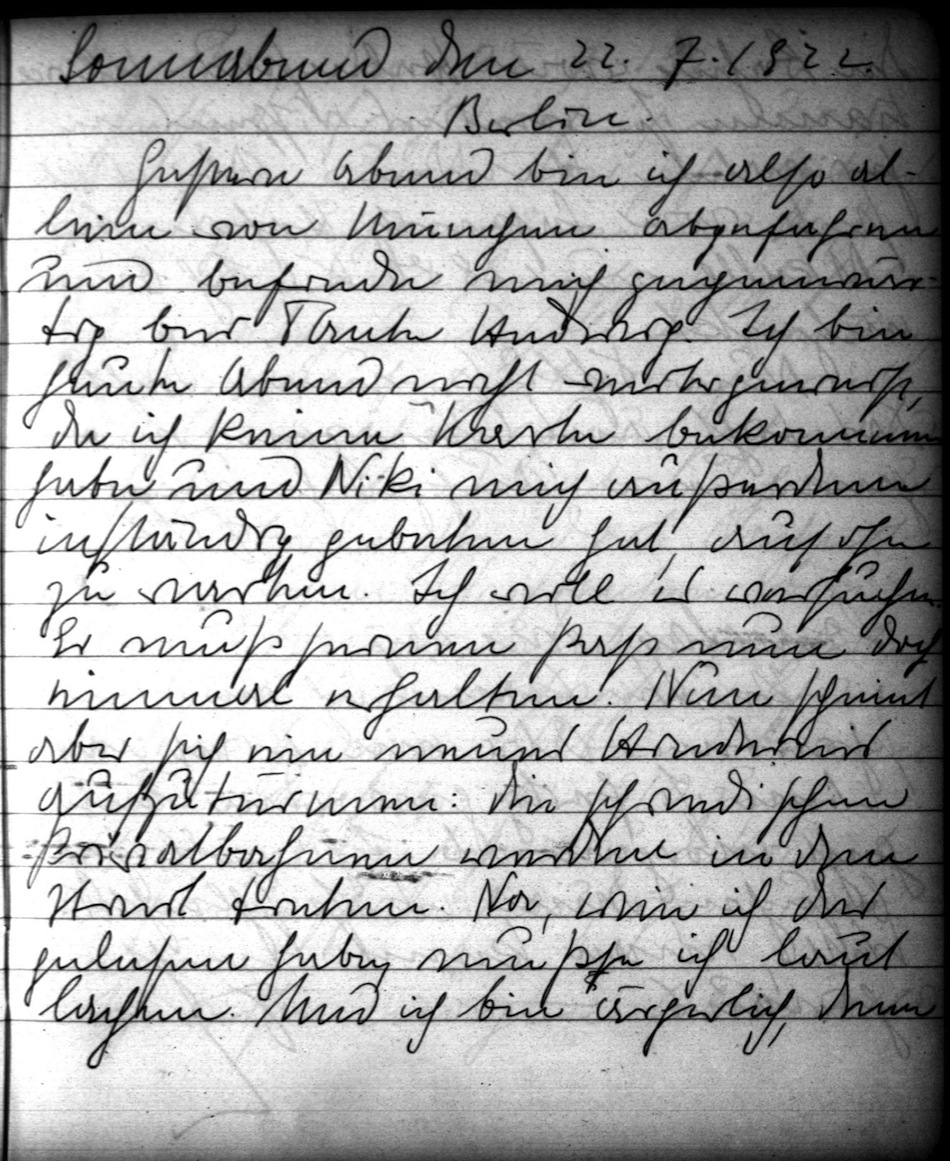 Sonnabend den 22. 7. 1922.
Berlin.
Gestern Abend bin ich also al-
lein von München abgefahren
und befinde mich gegenwär-
tig bei Tante Hedwig. Ich bin
heute Abend nicht weitergereist,
da ich keine Karte bekommen
habe und Niki mich außerdem
inständig gebeten hat, auf ihn
zu warten. Ich will es versuchen.
Er muß seinen Paß nun doch
einmal erhalten. Nun scheint
aber sich ein neues Hindernis
aufzutürmen: die schwedischen
Privatbahnen werden in den
Streik treten. Na, wie ich das
gelesen habe, mußte ich laut
lachen. Und ich bin ärgerlich, denn